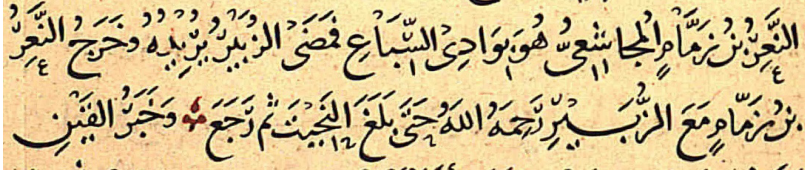 النَّعِرُ بْنُ زَمَّامٍ المُجَاشِعِىُّ هُوَ بِوَادِى السِّبَاعِ فَمَضَى الزُّبَيْرُ يُرِيدُهُ وَخَرَجَ النَّعِرُ
بنُ زَمَّامٍ مَعَ الزُّبَيْرِ رَحِمَهُ اللهُ حَتَّى بَلَغَ النَّجِيبَ ثُمَّ رَجَعَ وَخَبَرُ القَيْنِ